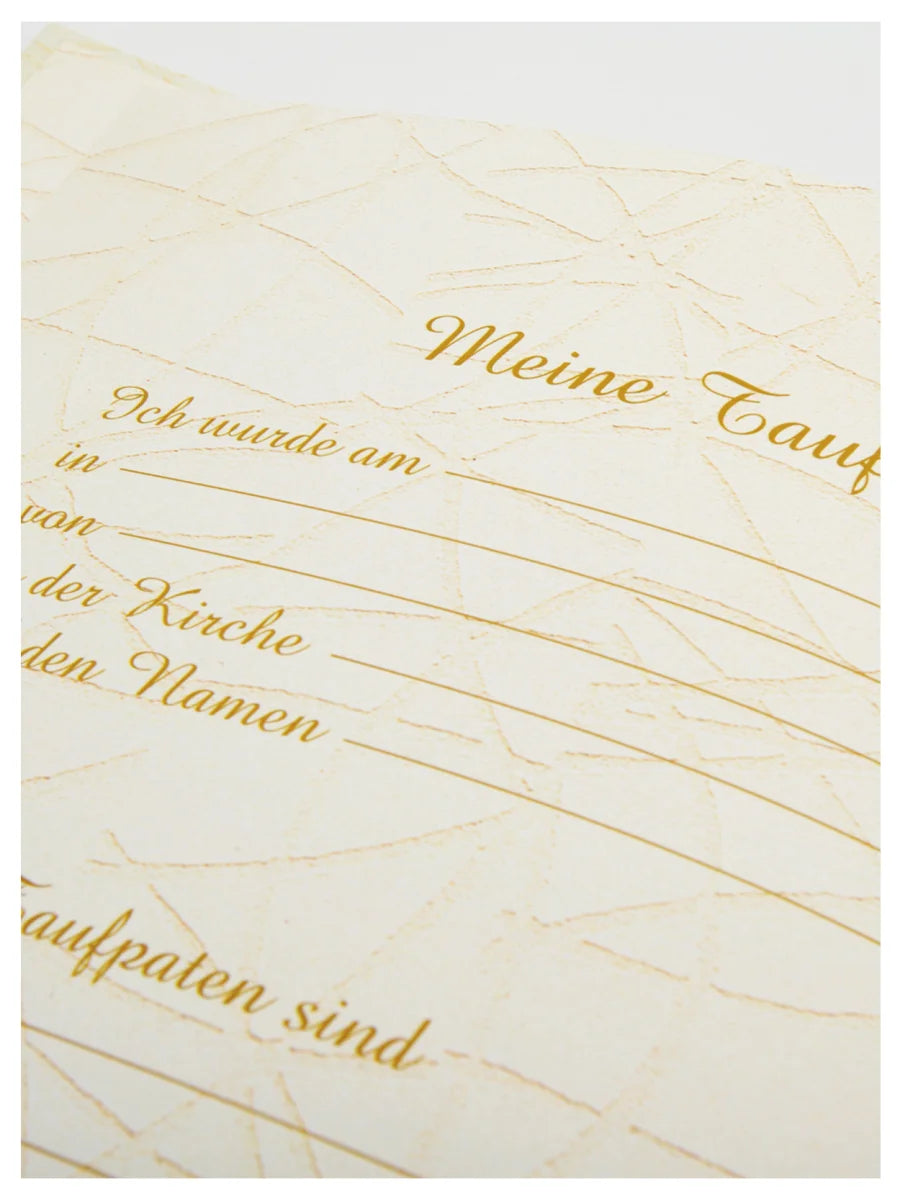 Meine Tauf
Ich wurde am
in
von
der Kirche
den Namen
aufpaten sind